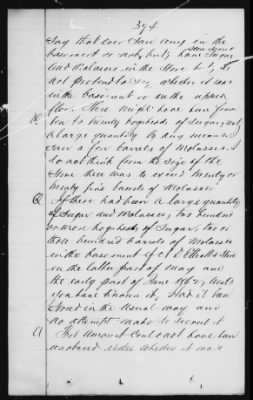 394
say that ever saw any in the
basement or not, but, have seen some
and molasses in the store but I do
not pretend to say whether it was
in the basement or in the upper
floor. There might have been from
ten to twenty hogsheads of sugar, not
a large quantity by any means
saw a few barrels of Molasses. I
do not think from the size of the
Store there was to exceed twenty or
twenty five barrels of Molasses
Q If there had been a large quantity
of Sugar and Molasses, two hundred
or more hogsheads of Sugar, two or
three hundred barrels of Molasses
in the basement of C. D. Elliotts Store
in the latter part of May and
the early part of June 1862, would
you have known it, Had it been
stored in the usual way and
no attempt made to secrete it
A That amount could not have been
unobserved either whether it was